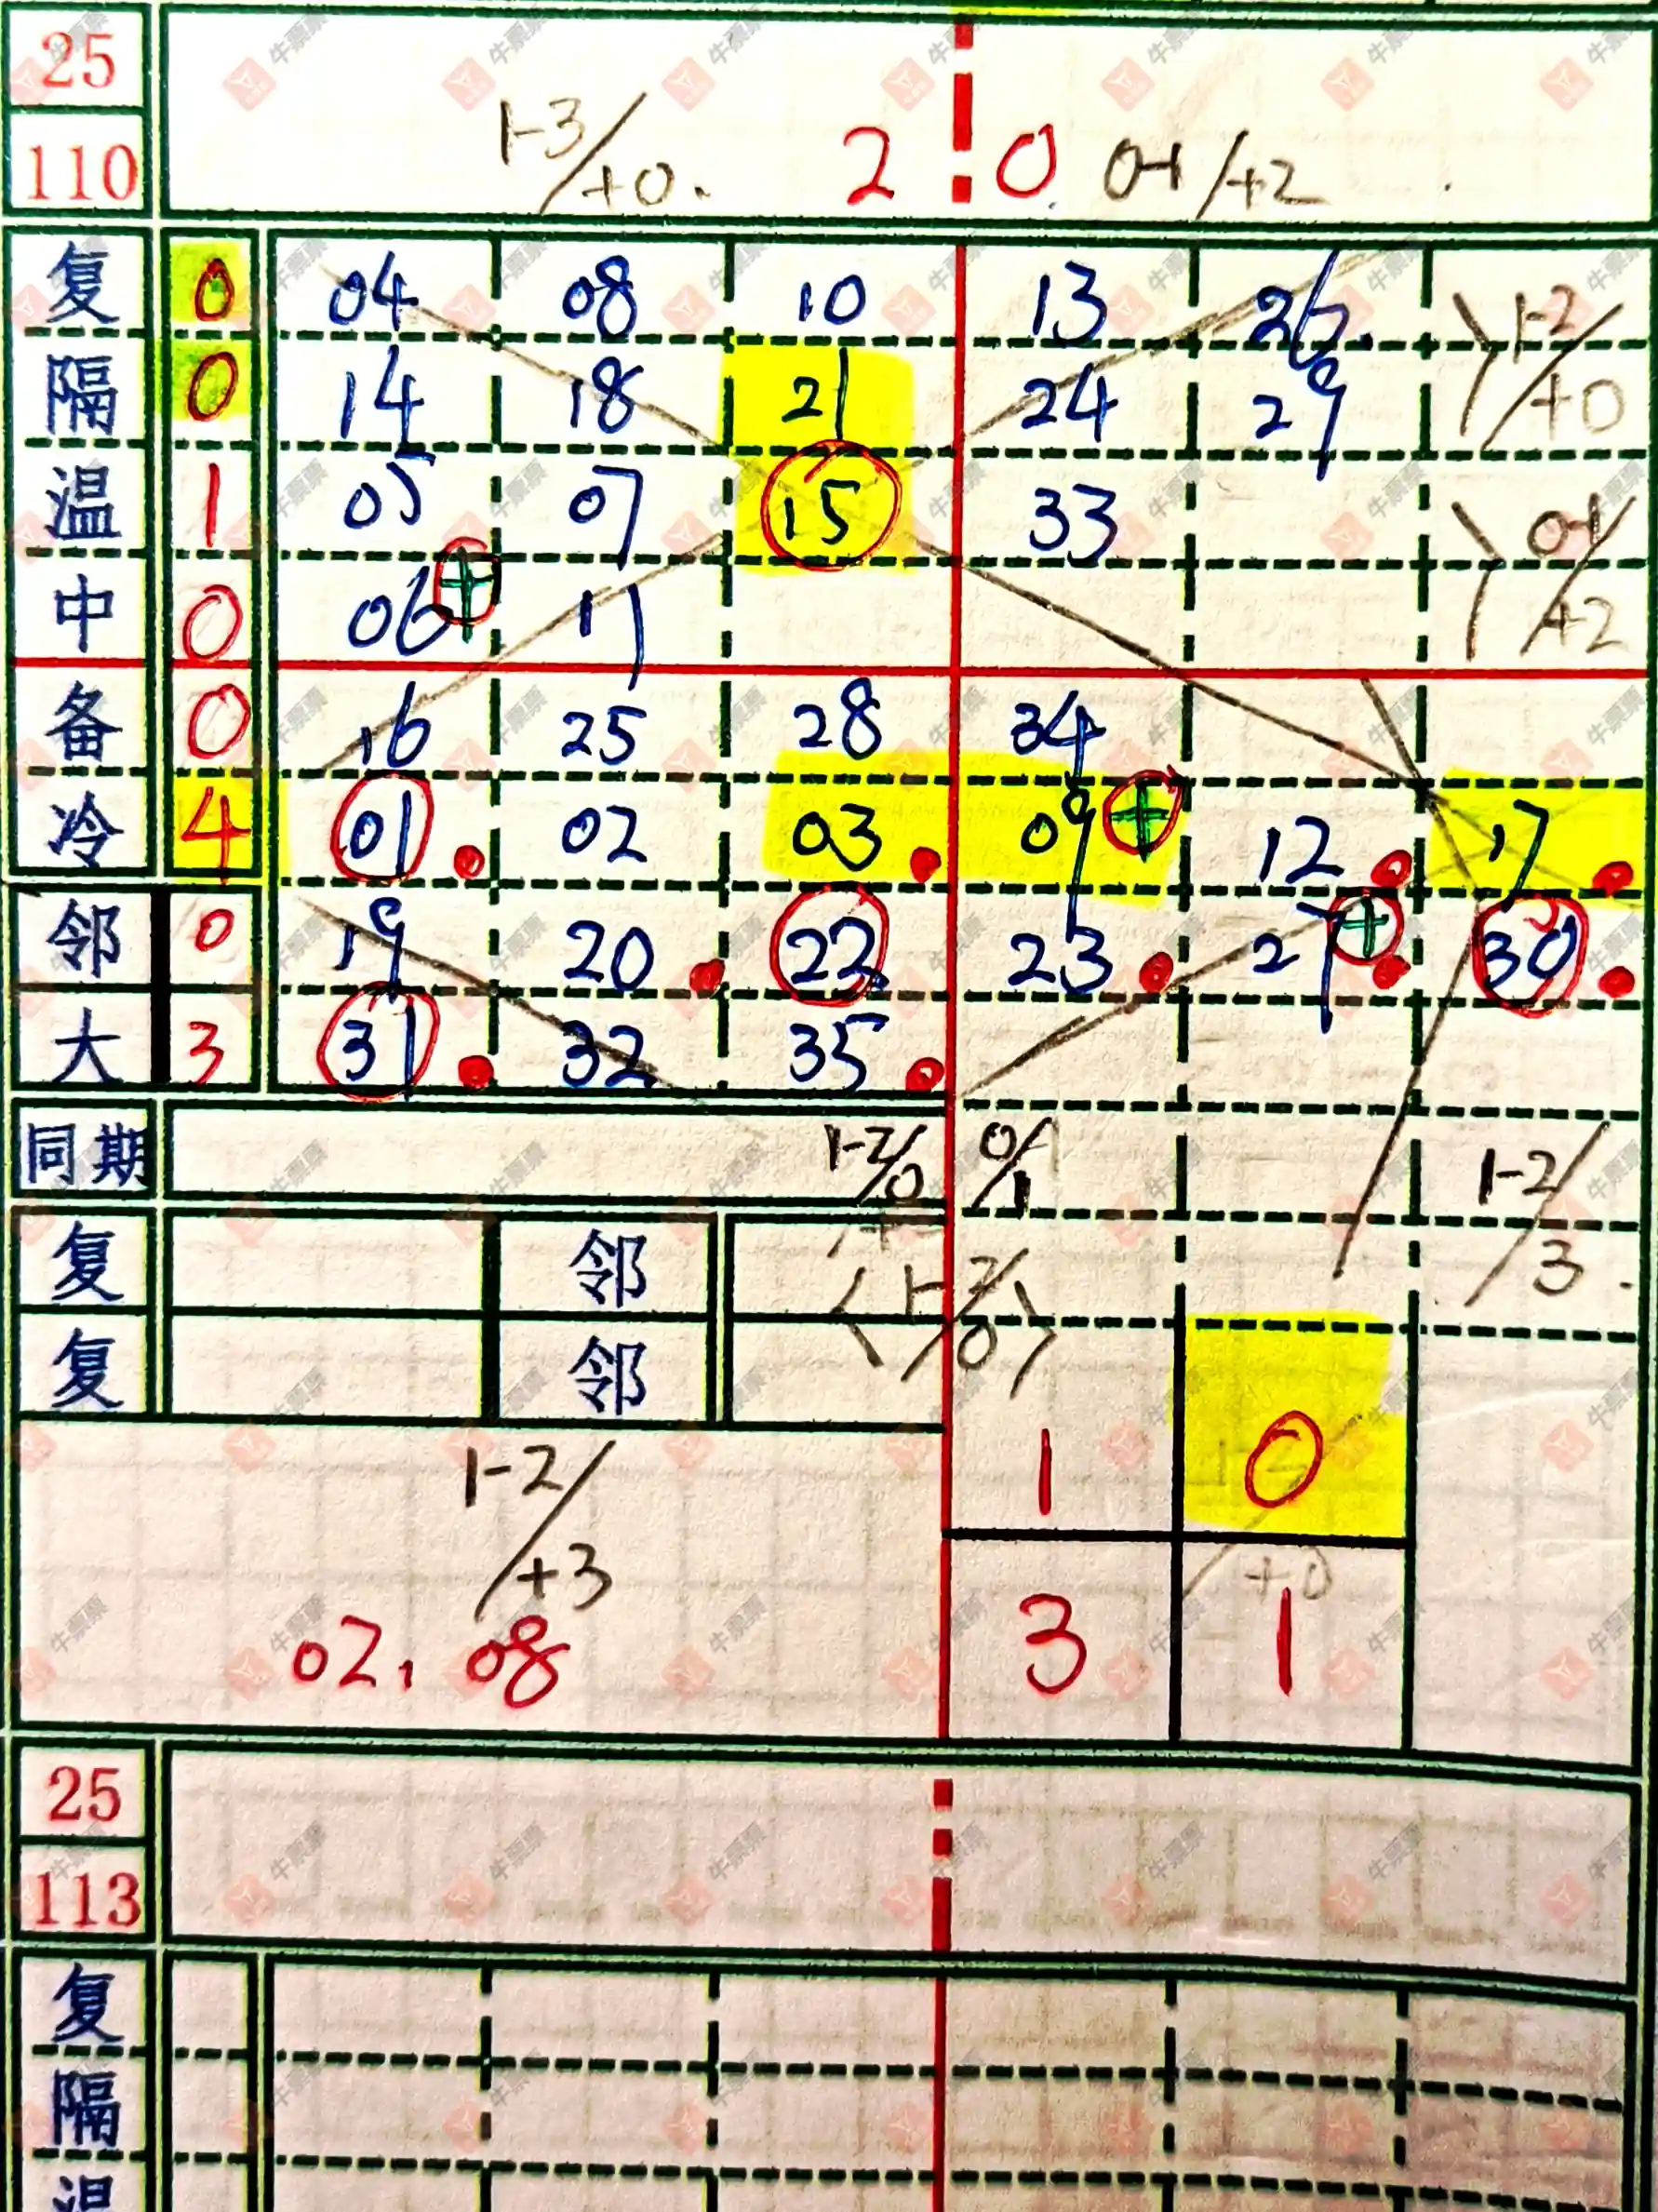 25
110 1-3/+0. 2 0 0-1/+2
复 0 04 08 10 13 26. 1-2/+0
隔 0 14 18 21 24 29
温 1 05 07 15 33 0-1/+2
中 0 06 + 11
备 0 16 25 28 34
冷 4 01 02 03 09 + 12 17
邻 0 19 20 22 23 27 + 30
大 3 31 32 35
同期 1-2/0 0/1 1-2/3.
复 邻 1-2/0
复 邻
1-2/+3 1 0
+0
02, 08 3 1
25
113
复
隔
温
牛票票